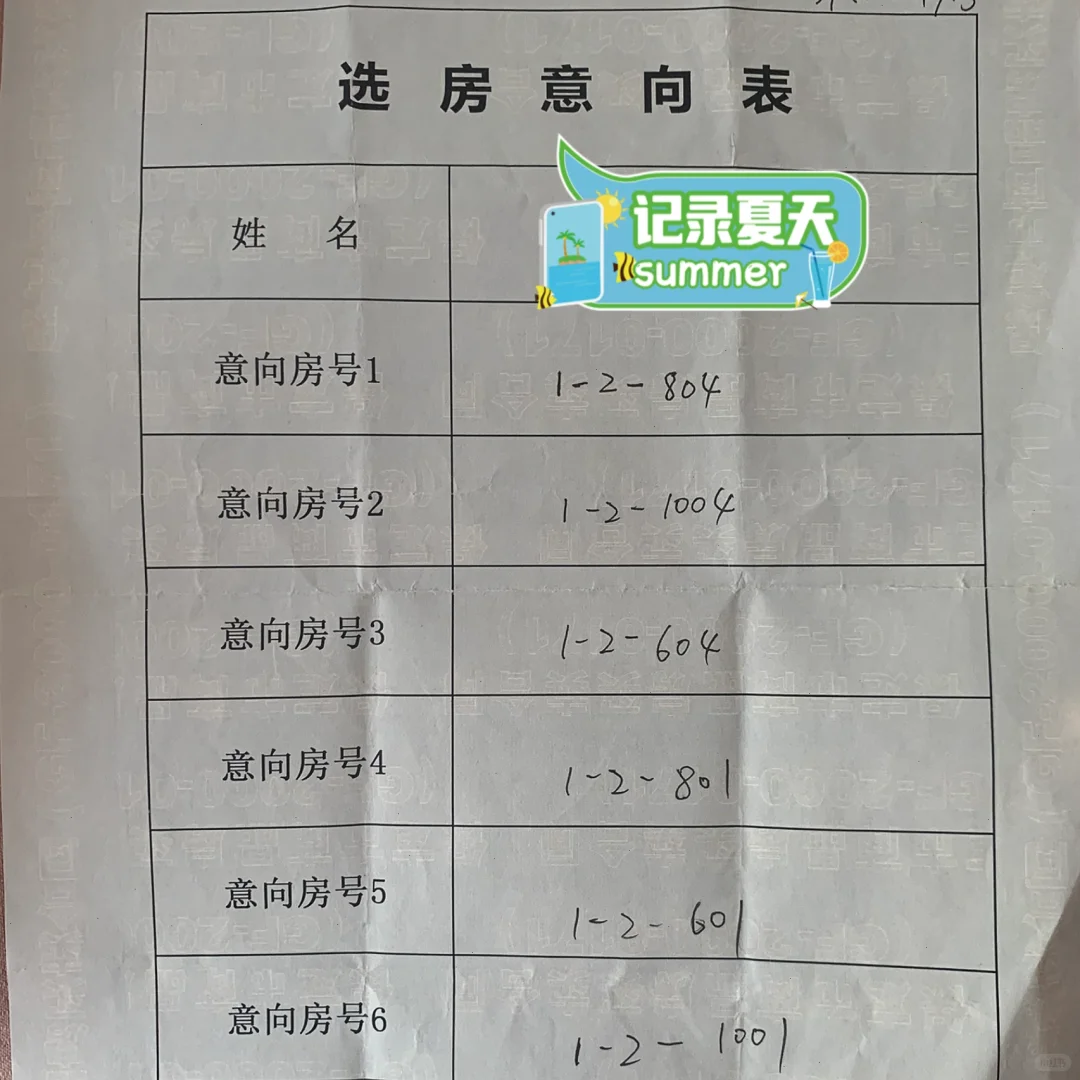 选房意向表
姓 名
记录夏天
summer
意向房号1 1-2-804
意向房号2 1-2-1004
意向房号3 1-2-604
意向房号4 1-2-801
意向房号5 1-2-601
意向房号6 1-2-1001